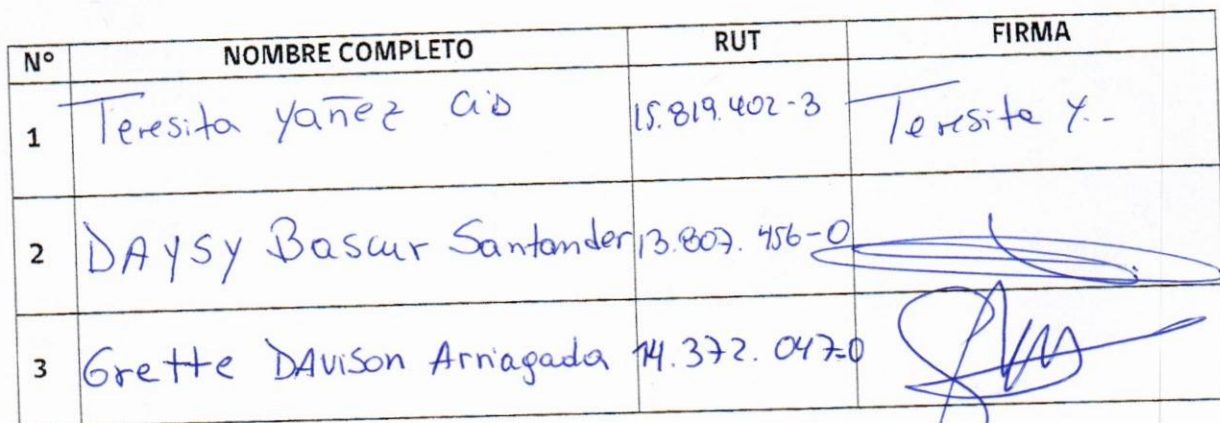 Nº NOMBRE COMPLETO RUT FIRMA
1 Teresita Yañez Cid 15.819.402-3 Teresita Y.-
2 DAYSY Bascur Santander 13.807.456-0
3 Grette DAVISON Arriagada 14.372.047-0